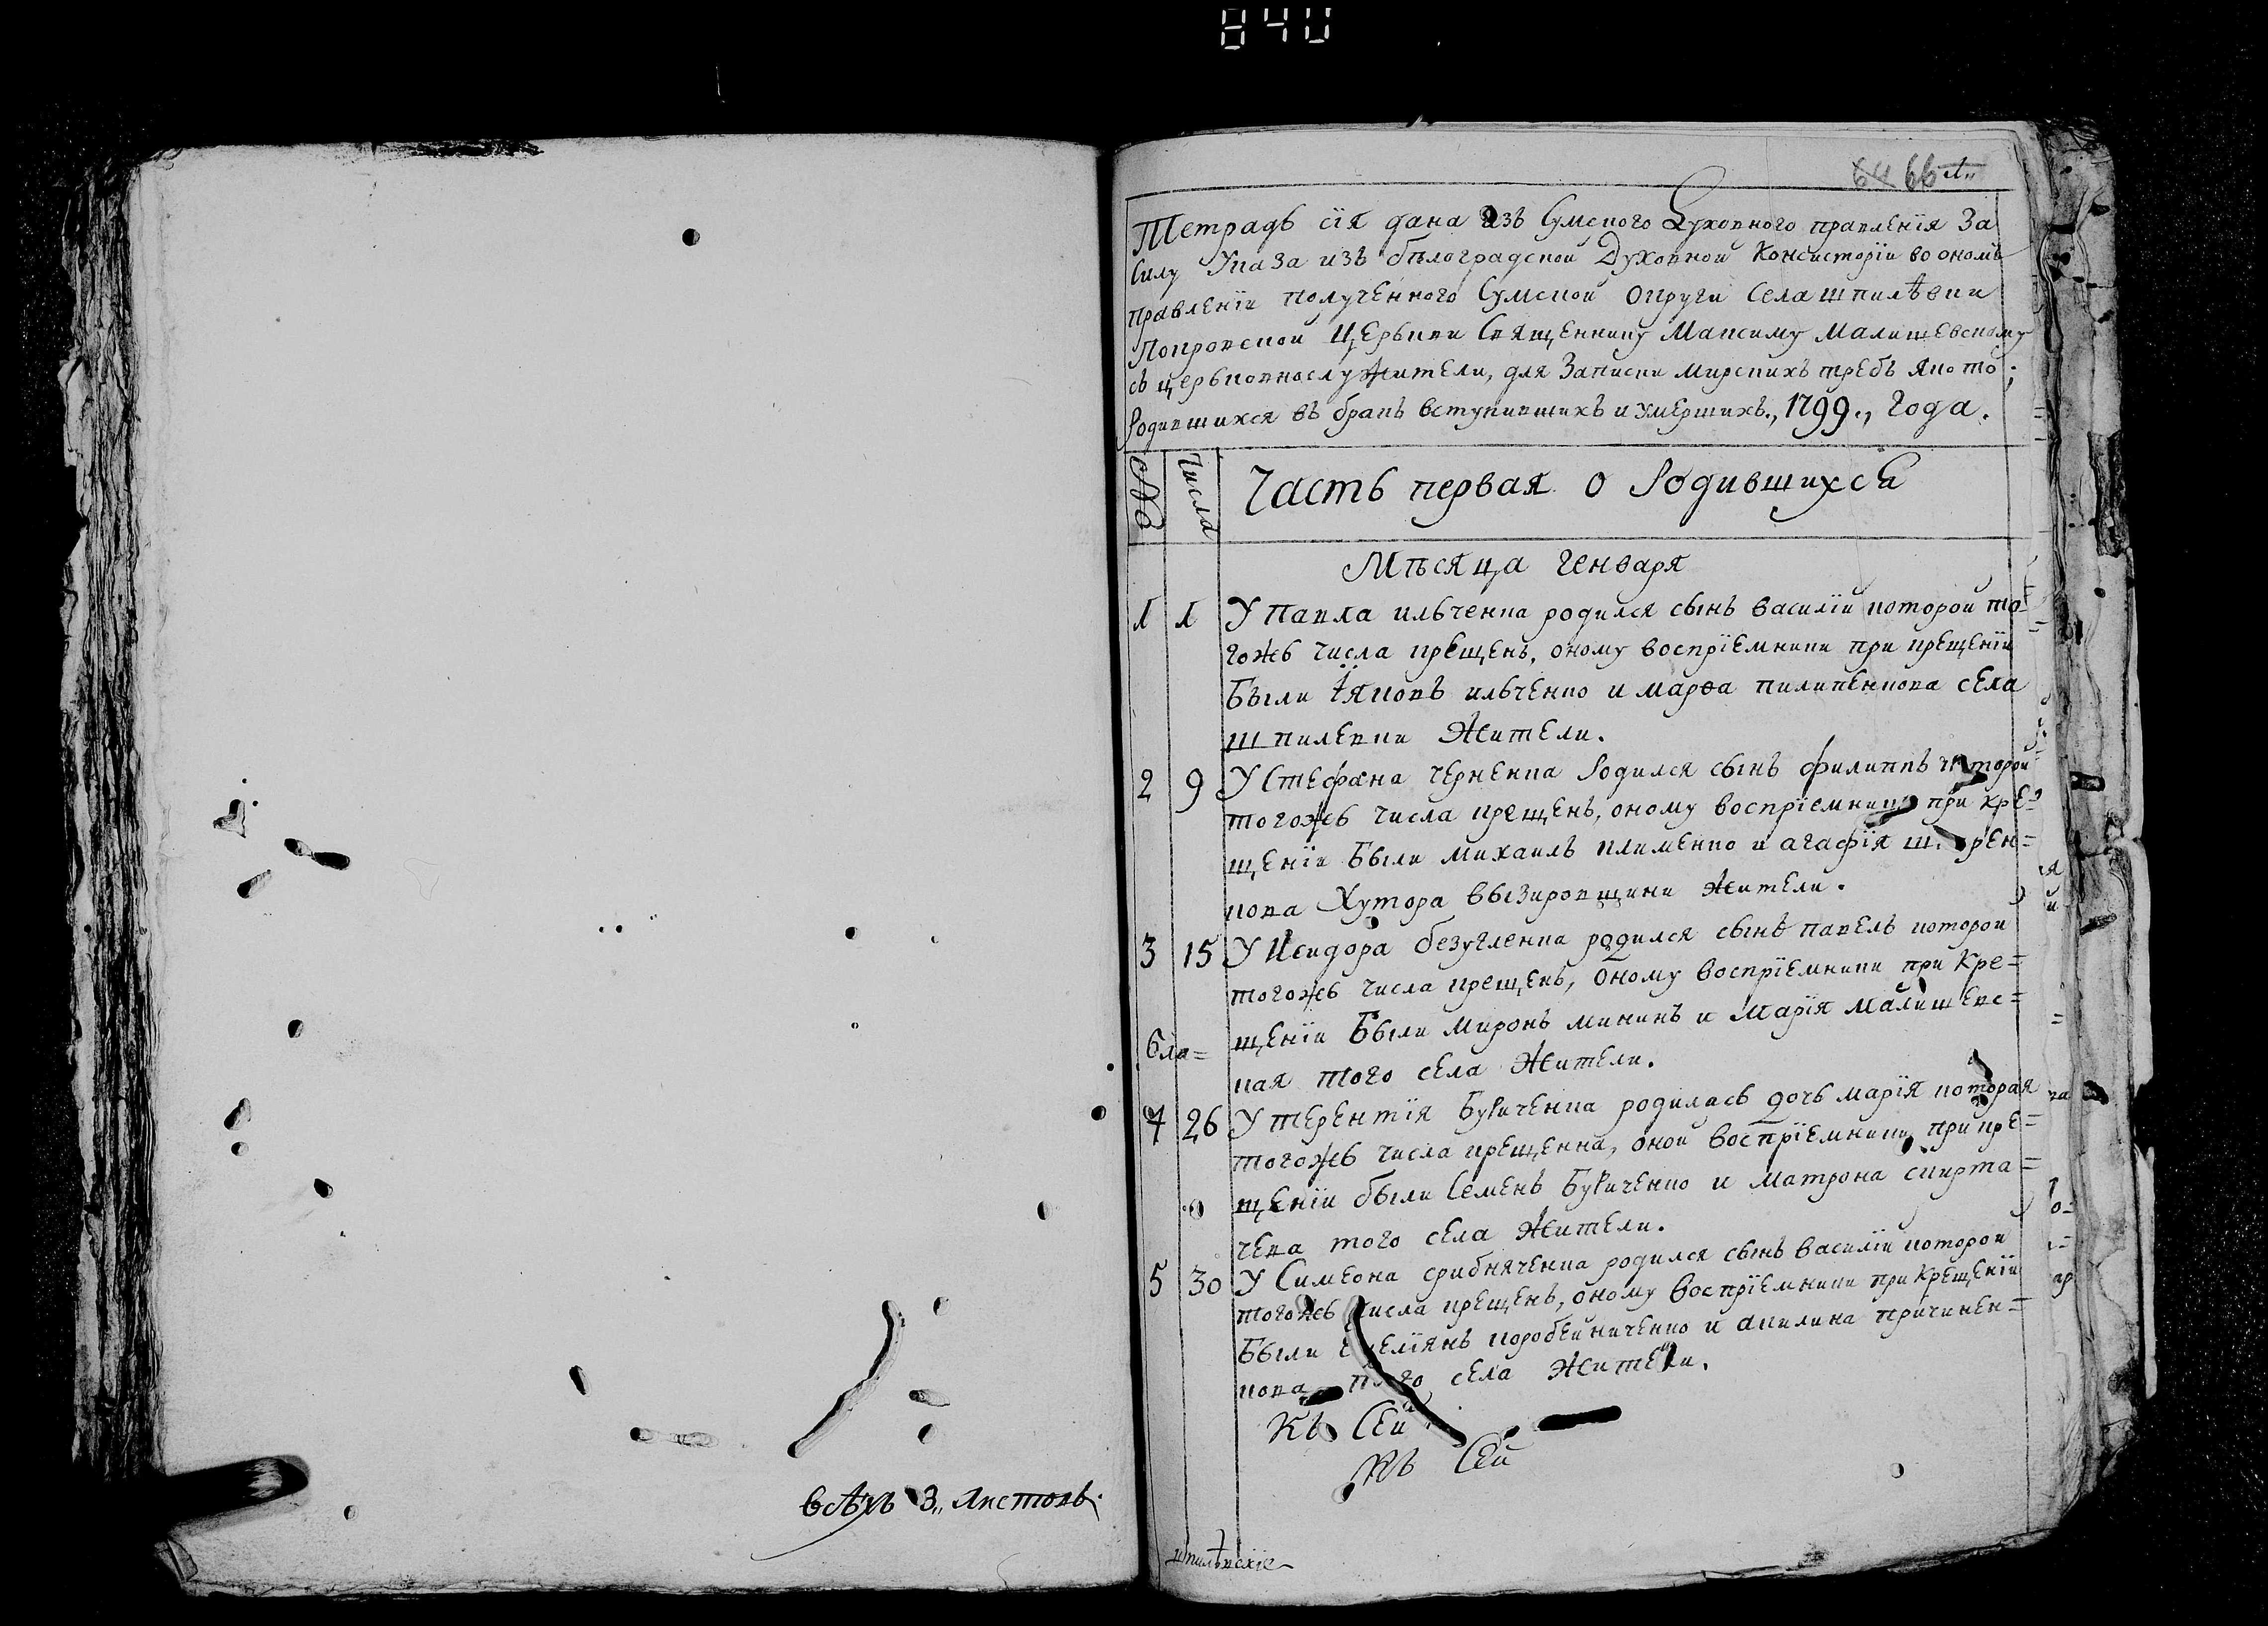 840
64 66 л.
Тетрадь сія дана изъ Сумского Духовного правленія За
силу Указа изъ бѣлоградской Духовной Консисторіи во ономъ
правленіи полученного Сумской округи села шпилѣвки
Покровской Церькви Священнику Максиму Малишевскому
съ церьковнослужители, для Записки мирскихъ требъ яко то;
Родившихся въ бракъ вступившихъ и умершихъ., 1799., Года.
№ Числа Часть первая о Родившихся
Мѣсяца генваря
1 1 У Павла ильченка родился сынъ василій которой то-
гожъ числа крещенъ, оному воспріемники при крещеніи
Были їяковъ ильченко и марѳа пилипенкова села
шпилевки Жители.
2 9 У Стефана черненка Родился сынъ филиппъ которой
тогожъ числа крещенъ, оному воспріемники при кре=
щеніи Были михаилъ клименко и агафія
кова Хутора вызировщини Жители.
3 15 У Исидора безугленка родился сынъ павелъ которой
тогожъ числа крещенъ, оному воспріемники при Кре=
щеніи Были миронъ мининъ и Марія малишевс=
Бла=
кая того села Жители.
4 26 У терентія Буриченка родилась дочь марія которая
тогожъ числа крещенна, оной воспріемники при кре=
щеніи были Семенъ Буриченко и матрона скирта=
чева того села Жители.
5 30 У Симеона срибняченка родился сынъ василій которой
тогожъ числа крещенъ, оному воспріемники при Крещеніи
Были емеліянъ коробейниченко и акилина причинен=
кова того села Жители.
Къ Сей
Къ Сей
всѣхъ 3,, листовъ.
шпилѣвскіе